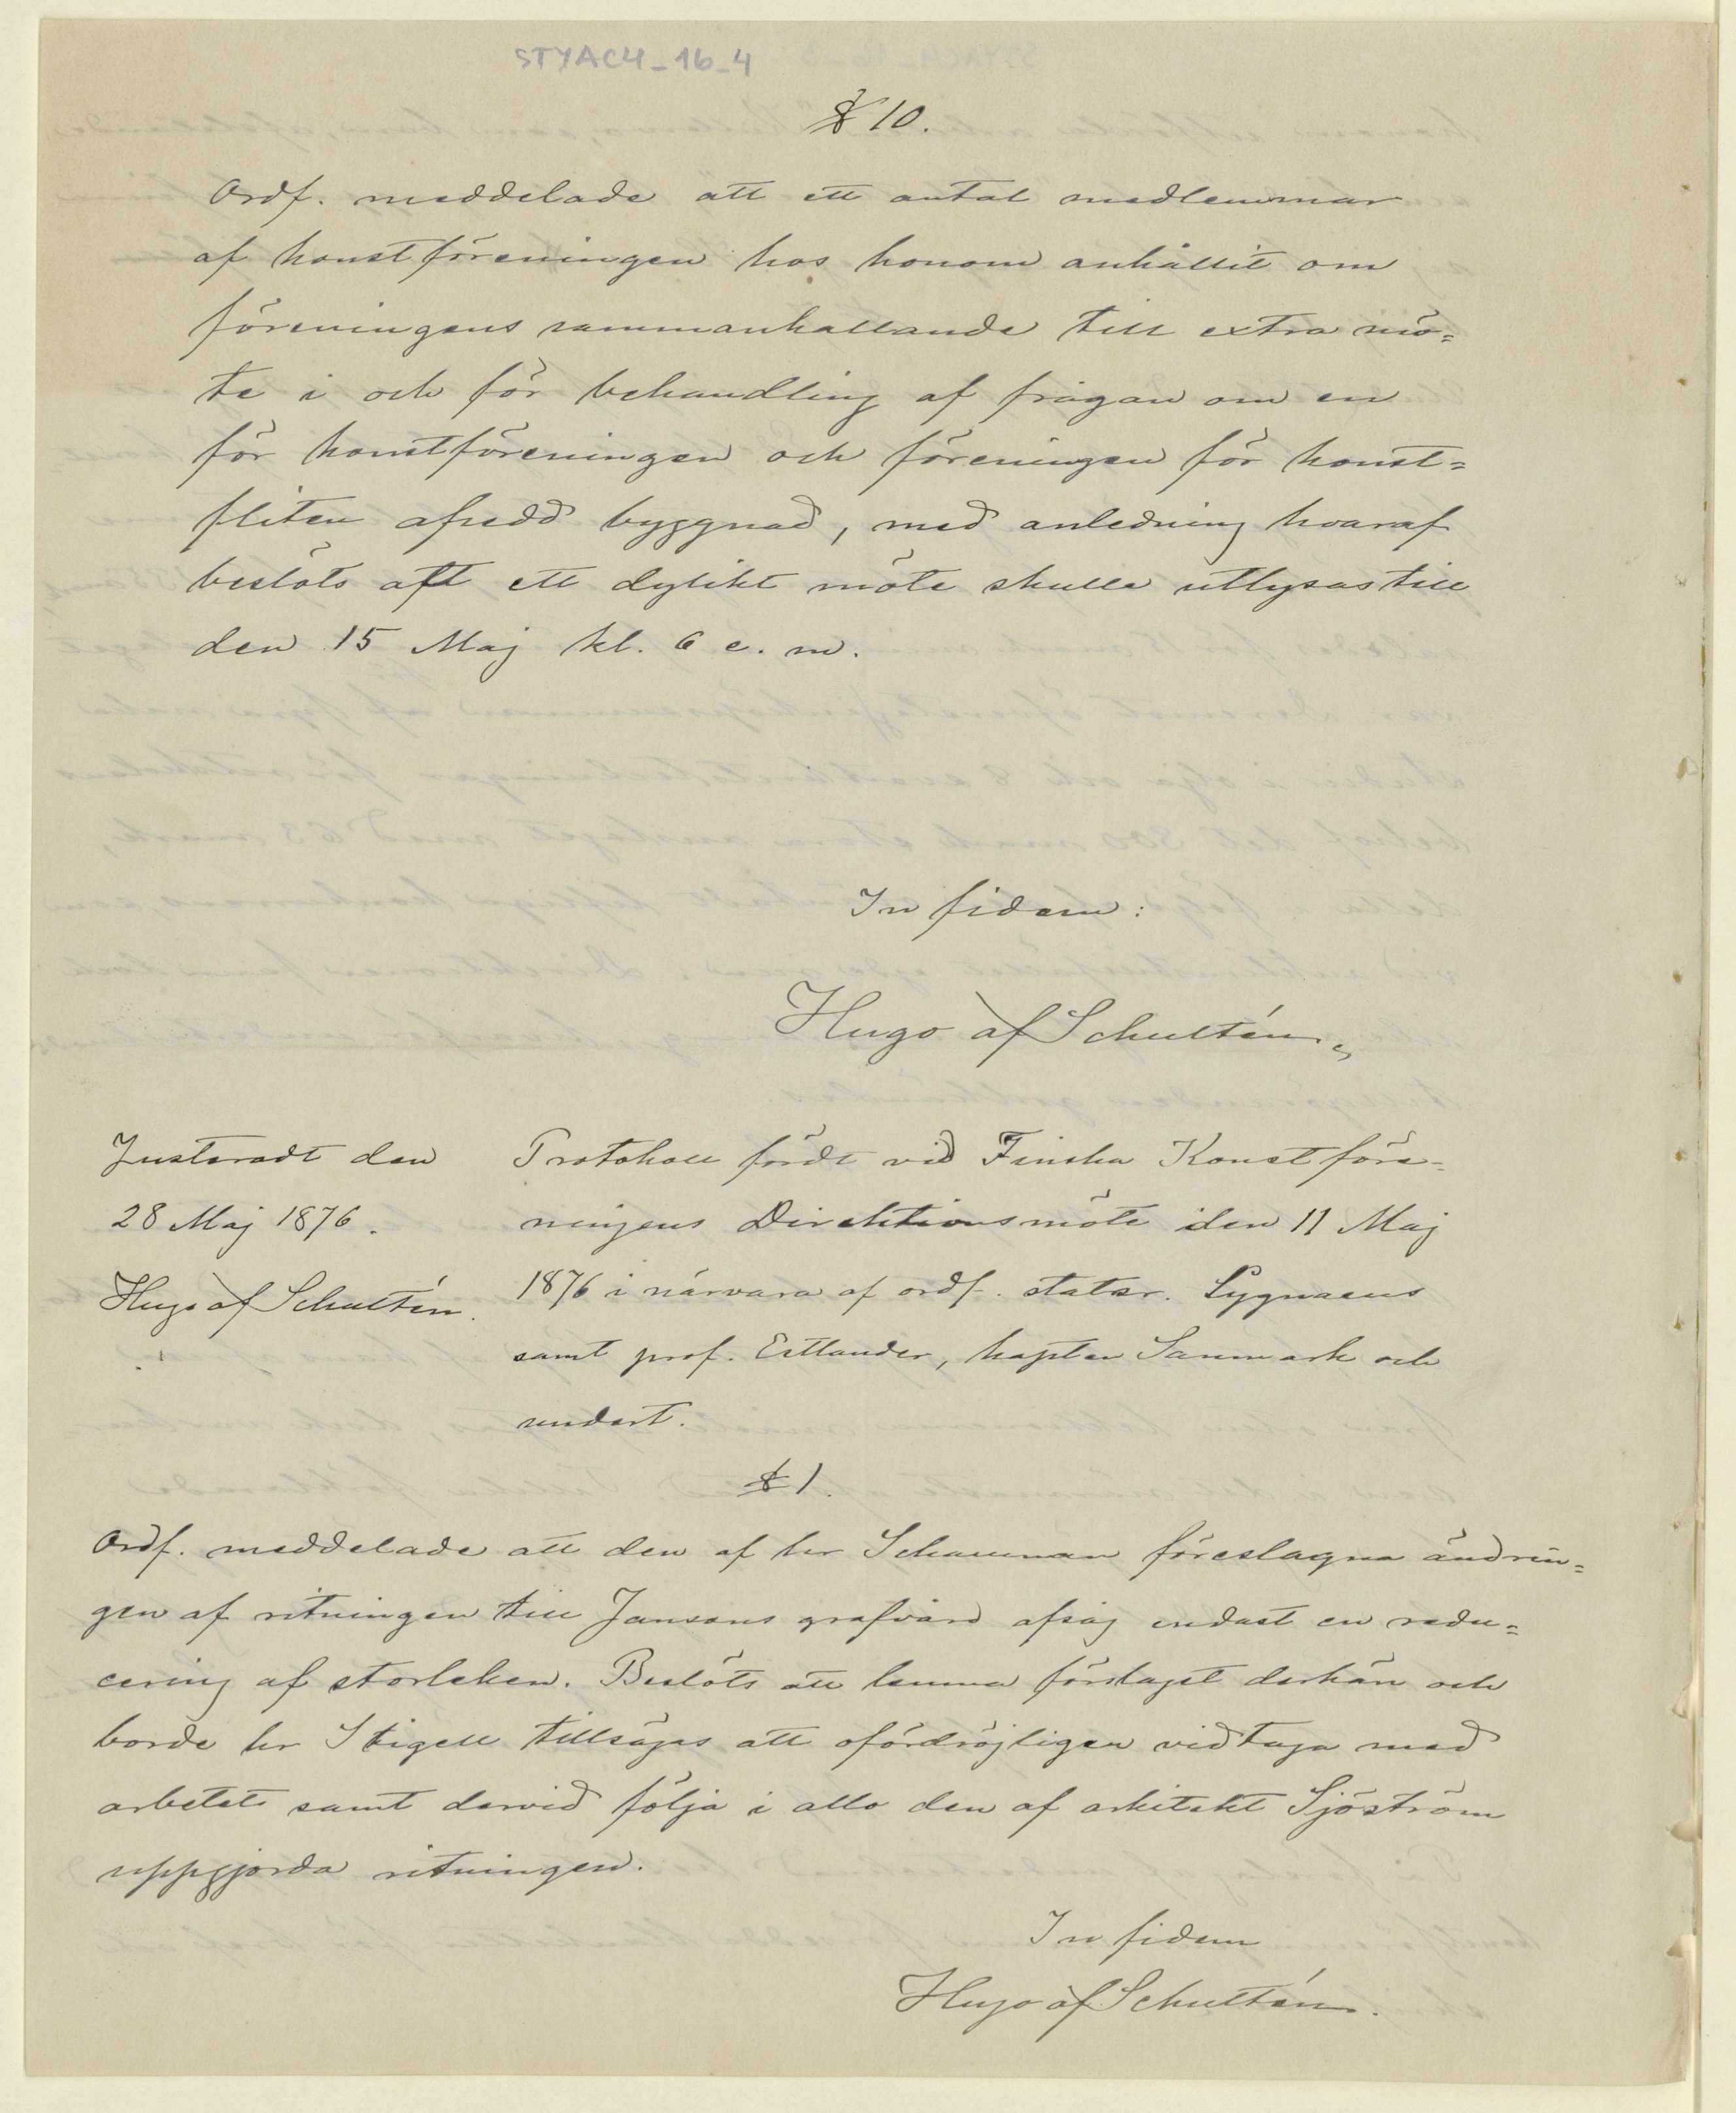 STYAC4_16_4
§ 10.
Ordf. meddelade att ett antal medlemmar
af konstföreningen hos honom anhållit om
föreningens sammankallande till extra mö=
te i och för behandling af frågan om en
för konstföreningen och föreningen för konst=
fliten afsedd byggnad, med anledning hvaraf
beslöts att ett dylikt möte skulle utlysas till
den 15 Maj kl. 6 e. m.
In fidem:
Hugo af Schultén
Justeradt den
28 Maj 1876.
Hugo af Schultén.
Protokoll fördt vid Finska Konstföre-
ningens Direktionsmöte den 11 Maj
1876 i närvara af ordf. statsr. Cygnaeus
samt prof. Estlander, kapten Sanmark och
undert.
§ 1.
Ordf. meddelade att den af hr Schauman föreslagna ändrin=
gen af ritningen till Jansons grafvård afsåg endast en redu=
cering af storleken. Beslöts att lemna förslaget derhän och
borde hr Stigell tillsägas att ofördröjligen vidtaga med
arbetet samt dervid följa i allo den af arkitekt Sjöström
uppgjorda ritningen.
In fidem
Hugo af Schultén.